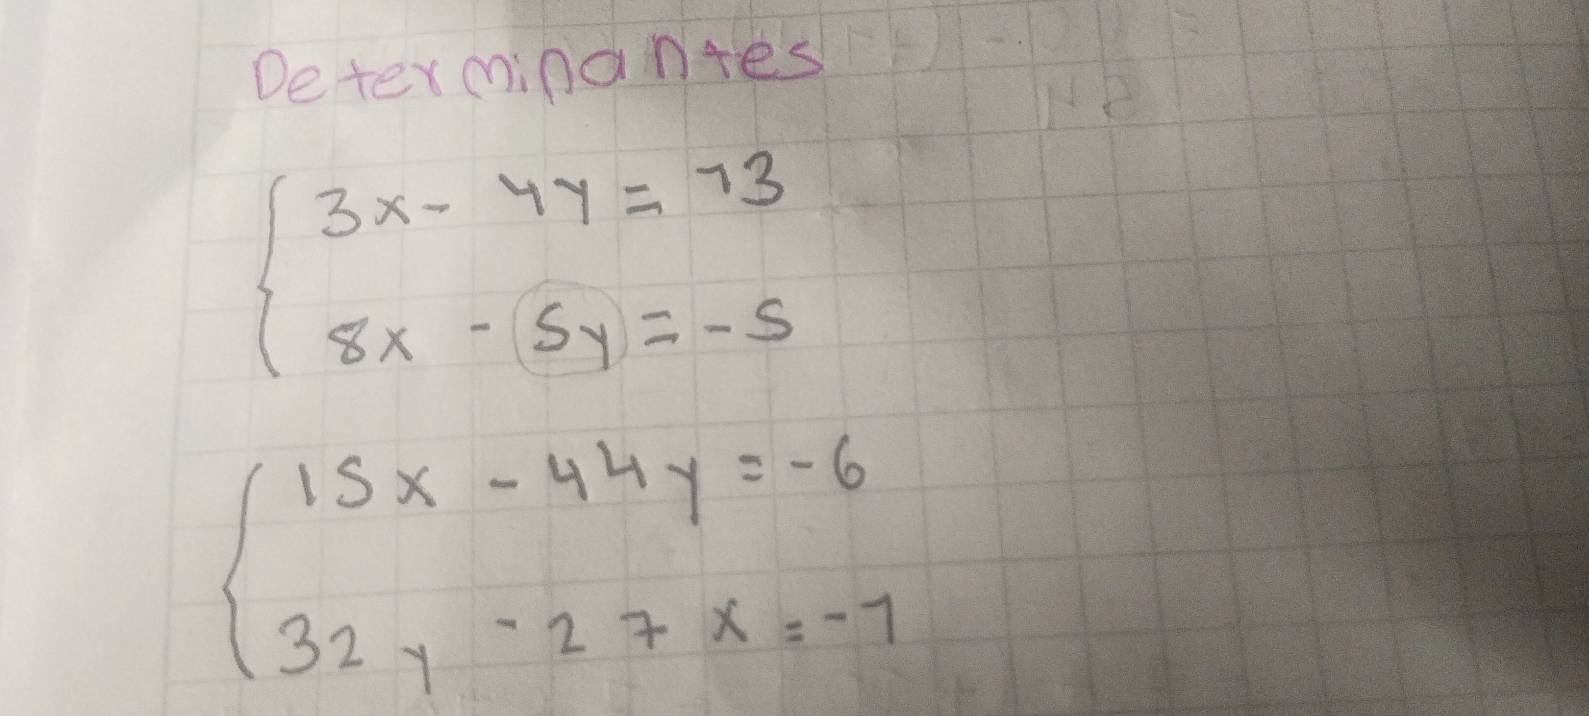 Determinantes
3x - 4y = 13
8x - 5y = -5
15x - 44y = -6
32y - 27x = -1